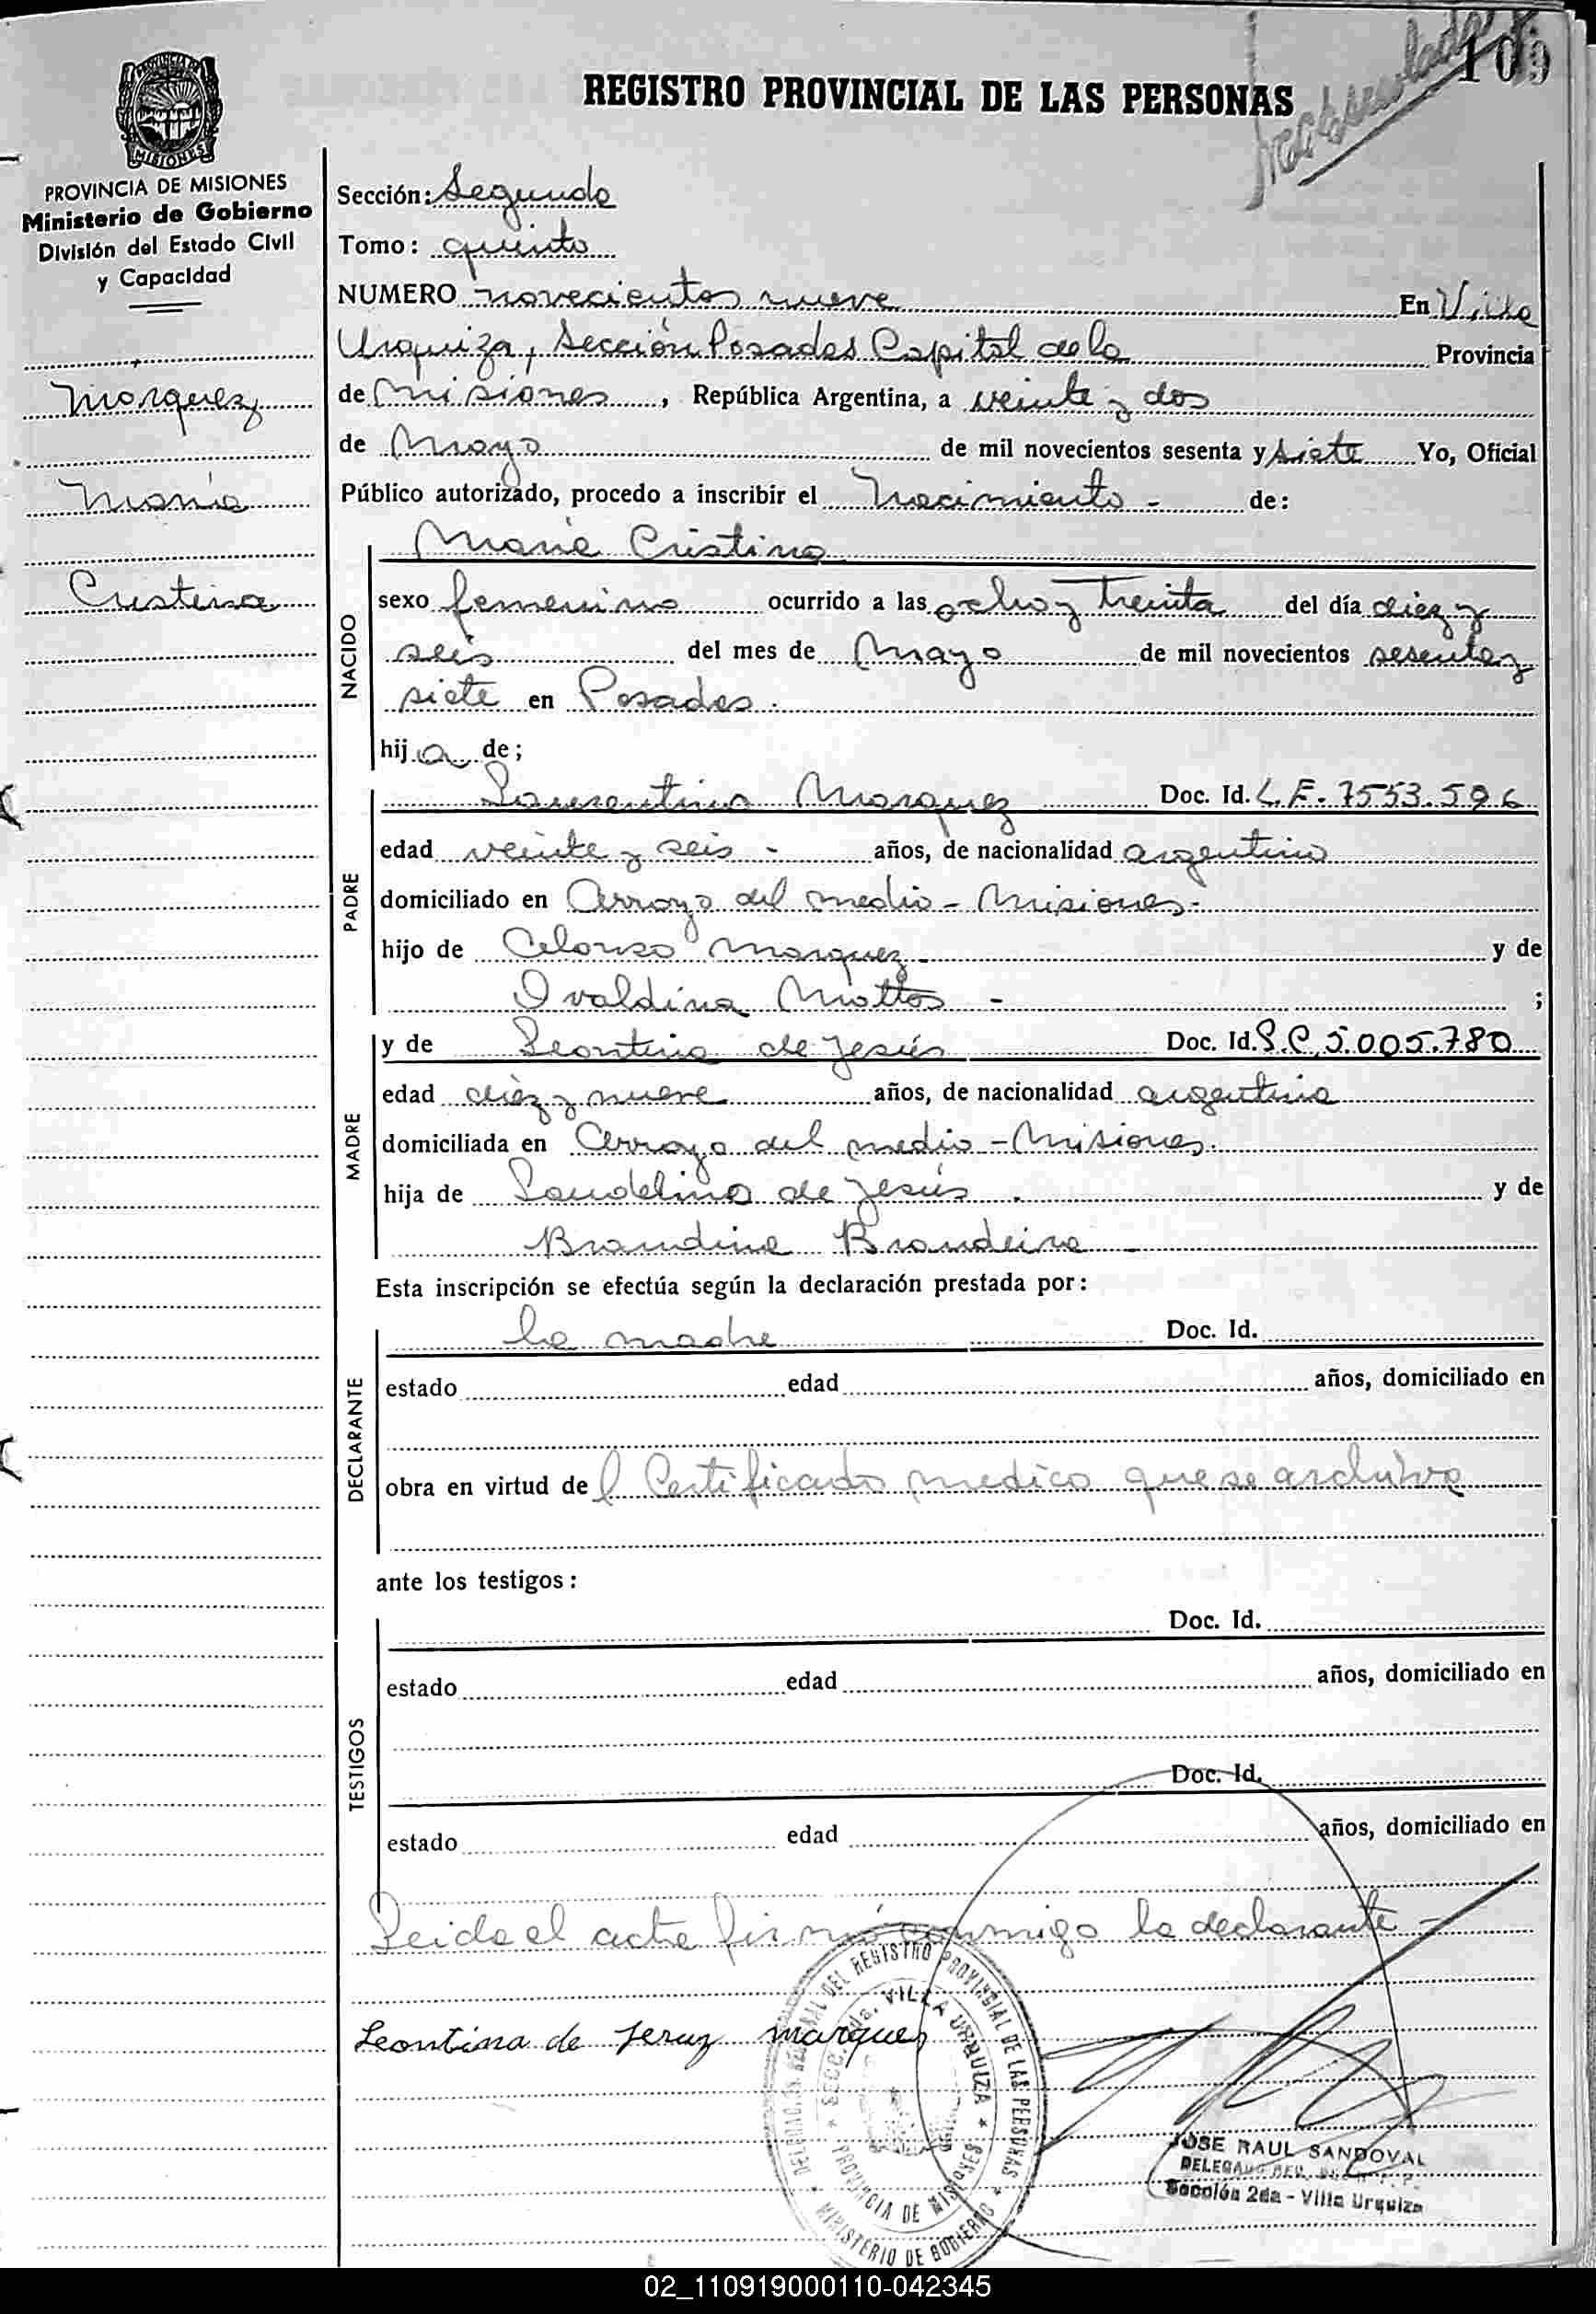 109
REGISTRO PROVINCIAL DE LAS PERSONAS
MISIONES
PROVINCIA DE MISIONES
Ministerio de Gobierno
División del Estado Civil
y Capacidad
Marquez
María
Cristina
Sección: Segunda
Tomo: quinto
NUMERO novecientos nueve En Villa
Urquiza, Sección Posadas Capital de la Provincia
de Misiones, República Argentina, a veinte y dos
de Mayo de mil novecientos sesenta y siete Yo, Oficial
Público autorizado, procedo a inscribir el Nacimiento - de:
María Cristina
NACIDO
sexo femenino ocurrido a las ocho y treinta del día diez y
seis del mes de Mayo de mil novecientos sesenta y
siete en Posadas.
hija de;
PADRE
Laurentino Marquez Doc. Id. L.E. 7553.596
edad veinte y seis - años, de nacionalidad argentino
domiciliado en Arroyo del medio - Misiones -
hijo de Marquez - y de
Ovaldina Mattos - ;
MADRE
y de Leontina de Jesús Doc. Id. L.C. 5.005.780
edad diez y nueve años, de nacionalidad argentina
domiciliada en Arroyo del medio - Misiones.
hija de Laudelino de Jesús . y de
Brandina Brandeira -
Esta inscripción se efectúa según la declaración prestada por:
DECLARANTE
la madre Doc. Id.
estado edad años, domiciliado en
obra en virtud del Certificado medico que se archiva
ante los testigos:
TESTIGOS
Doc. Id.
estado edad años, domiciliado en
Doc. Id.
estado edad años, domiciliado en
Leida el acta firmó conmigo la declarante -
Leontina de Jeruz marquez
DELEGACIÓN SECCIONAL DEL REGISTRO PROVINCIAL DE LAS PERSONAS
SECC. 2da. VILLA URQUIZA
PROVINCIA DE MISIONES
MINISTERIO DE GOBIERNO
JOSE RAUL SANDOVAL
DELEGADO
Sección 2da - Villa Urquiza
02_110919000110-042345